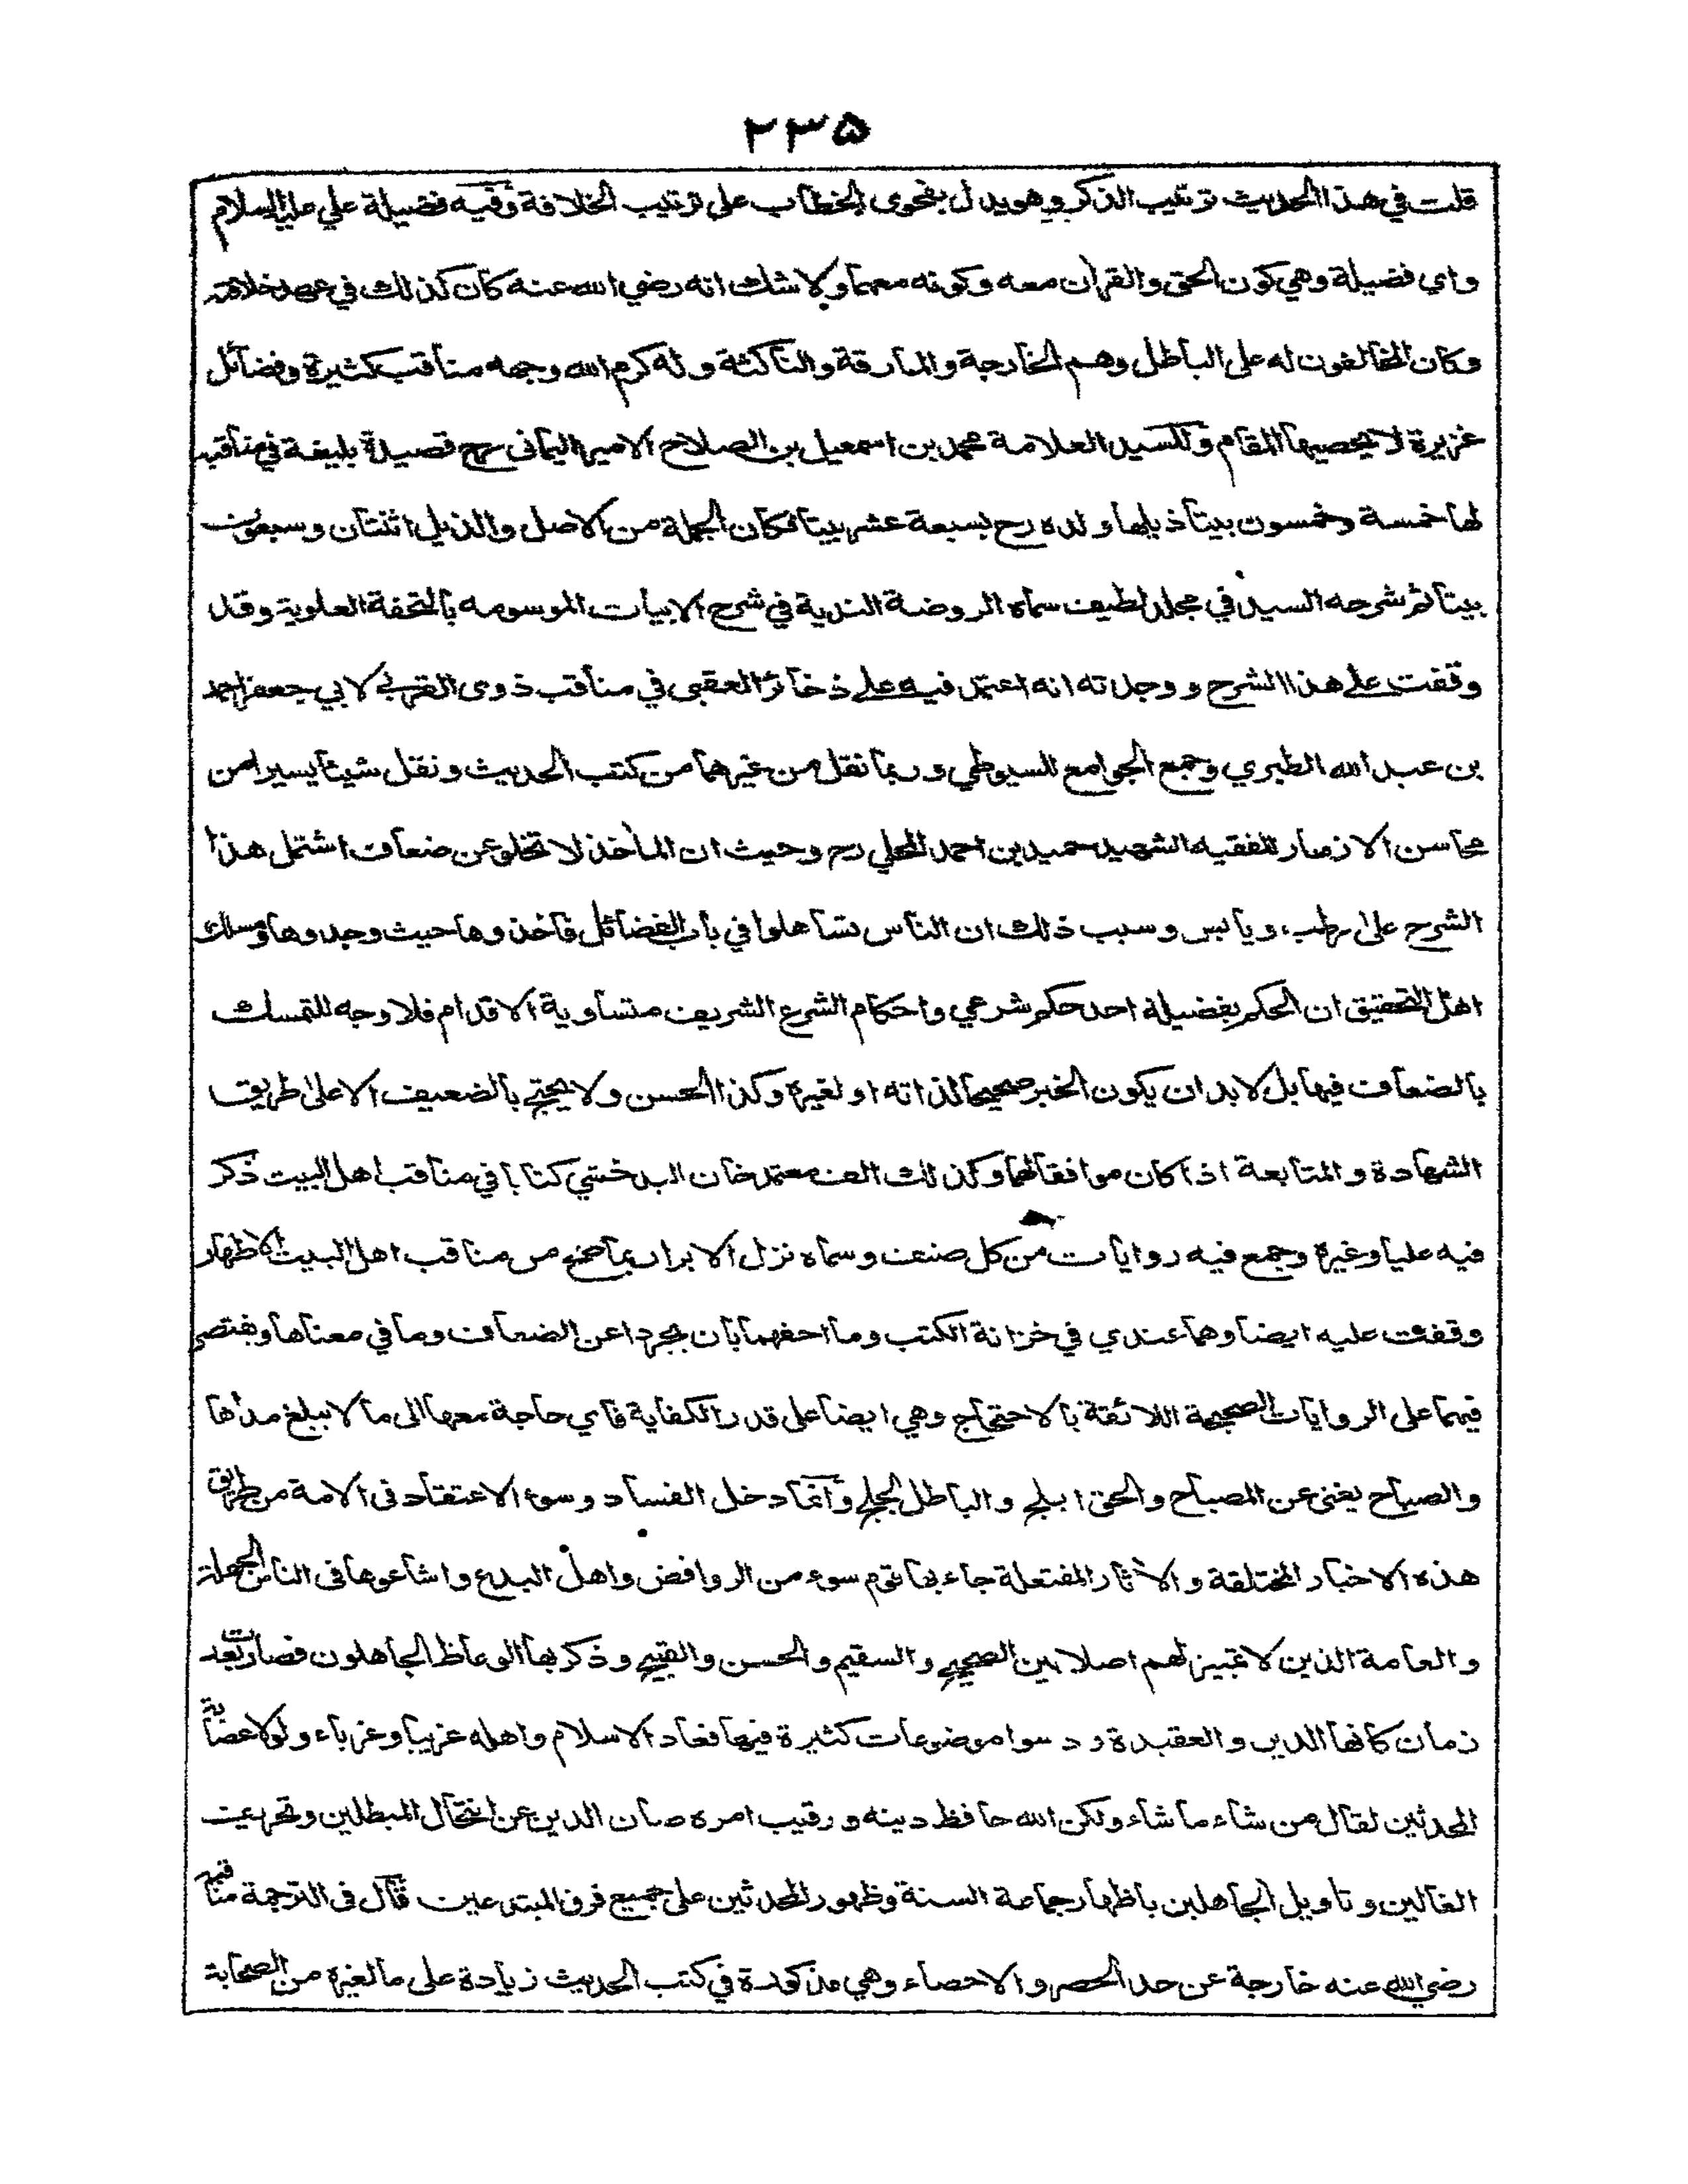 ٢٣٥
قلت في هذا الحديث ترتيب الذكر وهو يدل بفحوى الخطاب على ترتيب الخلافة وفيه فضيلة علي عليه السلام
واي فضيلة وهي كون الحق والقرآن معه وكونه معهما ولا شك انه رضي الله عنه كان كذلك في عهد خلافته
وكان المخالفون له على الباطل وهم الخارجة والمارقة والناكثة وله كرم الله وجهه مناقب كثيرة وفضائل
غزيرة لا يحصيها المقام وللسيد العلامة محمد بن اسمعيل بن الصلاح الامير اليماني رح قصيدة بليغة في مناقبه
لها خمسة وخمسون بيتا ذيلها ولده رح بسبعة عشر بيتا فكان الجملة من الاصل والذيل اثنتان وسبعون
بيتا ثم شرحه السيد في مجلد لطيف سماه الروضة الندية في شرح الابيات الموسومه بالتحفة العلوية وقد
وقفت على هذا الشرح ووجدته انه اعتمد فيه على ذخائر العقبى في مناقب ذوى القربى لابي جعفر احمد
بن عبد الله الطبري وجمع الجوامع للسيوطي وربما نقل من غيرهما من كتب الحديث ونقل شيئا يسيرا من
محاسن الازهار للفقيه الشهيد حميد بن احمد المحلي رح وحيث ان المآخذ لا تخلو عن ضعاف اشتمل هذا
الشرح على رطب ويابس وسبب ذلك ان الناس تساهلوا في باب الفضائل فأخذوها حيث وجدوها ومسلك
اهل التحقيق ان الحكم بفضيلة احد حكم شرعي واحكام الشرع الشريف متساوية الاقدام فلا وجه للتمسك
بالضعاف فيها بل لا بد ان يكون الخبر صحيحا لذاته او لغيره وكذا الحسن ولا يحتج بالضعيف الا على طريق
الشهادة والمتابعة اذا كان موافقا لهما وكذلك الف معتمد خان البدخشي كتابا في مناقب اهل البيت ذكر
فيه عليا وغيره وجمع فيه روايات من كل صنف وسماه نزل الابرار بما صح من مناقب اهل البيت الاطهار
وقفت عليه ايضا وهما عندي في خزانة الكتب وما احقهما بان يجردا عن الضعاف وما في معناها ويقتصر
فيهما على الروايات الصحيحة اللائقة بالاحتجاج وهي ايضا على قدر الكفاية فاي حاجة معها الى ما لا يبلغ مداها
والصباح يغني عن المصباح والحق ابلج والباطل لجلج وانما دخل الفساد وسوء الاعتقاد في الامة من طريق
هذه الاخبار المختلقة والآثار المفتعلة جاء بها قوم سوء من الروافض واهل البدع واشاعوها في الناس الجهلة
والعامة الذين لا تمييز لهم اصلا بين الصحيح والسقيم والحسن والقبيح وذكر بها الوعاظ الجاهلون فصارت بعد
زمان كانها الدين والعقيدة ودسوا موضوعات كثيرة فيها فعاد الاسلام واهله غريبا وغرباء ولولا عصابة
المحدثين لقال من شاء ما شاء ولكن الله حافظ دينه ورقيب امره صان الدين عن انتحال المبطلين وتحريف
الغالين وتاويل الجاهلين باظهار جماعة السنة وظهور المحدثين على جميع فرق المبتدعين قال في الترجمة مناقبه
رضي الله عنه خارجة عن حد الحصر والاحصاء وهي مذكورة في كتب الحديث زيادة على ما لغيره من الصحابة